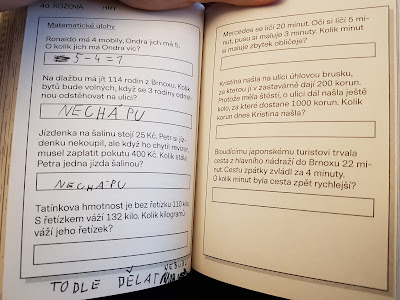 40. RŮŽOVÁ HRY
Matematické úlohy
Ronaldo má 4 mobily, Ondra jich má 5.
O kolik jich má Ondra víc?
5-4=1
Na dlažbu má jít 114 rodin z Brnoxu. Kolik
bytů bude volných, když se 3 rodiny odmít-
nou odstěhovat na ulici?
NECHÁPU
Jízdenka na šalinu stojí 25 Kč. Petr si jíz-
denku nekoupil, ale když ho chytil revizor,
musel zaplatit pokutu 400 Kč. Kolik stála
Petra jedna jízda šalinou?
NECHÁPU
Tatínkova hmotnost je bez řetízku 110 kilo.
S řetízkem váží 132 kilo. Kolik kilogramů
váží jeho řetízek?
TODLE DĚLAT
Mercedes se líčí 20 minut. Oči si líčí 5 mi-
nut, pusu si maluje 3 minuty. Kolik minut
si maluje zbytek obličeje?
Kristína našla na ulici úhlovou brusku,
za kterou jí v zastavárně dají 200 korun.
Protože měla štěstí, o ulici dál našla ještě
kolo, za které dostane 1000 korun. Kolik
korun dnes Kristína našla?
Bloudícímu japonskému turistovi trvala
cesta z hlavního nádraží do Brnoxu 22 mi-
nut. Cestu zpátky zvládl za 4 minuty.
O kolik minut byla cesta zpět rychlejší?